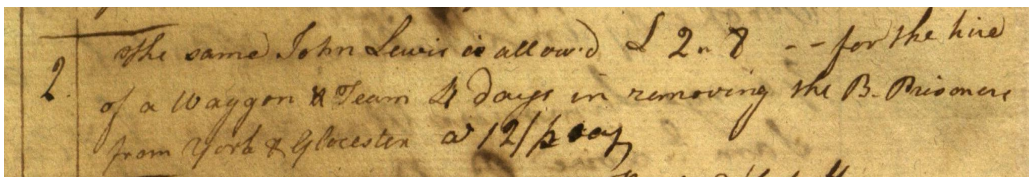 2. The same John Lewis is allow'd £ 2 " 8 -- for the hire
of a Waggon & Team 4 days in removing the B. Prisoners
from York & Glocester a 12/ p day